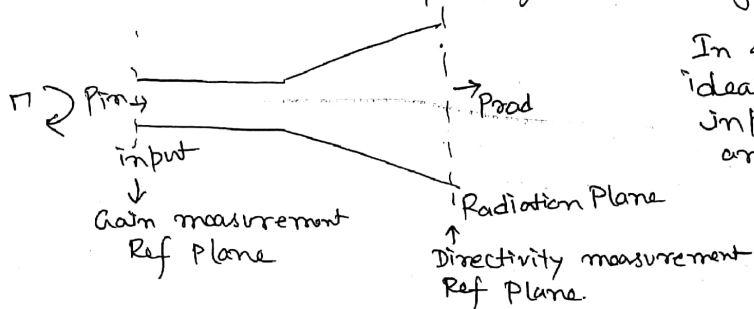 In
idea
inp
ar
Γ Pin→
→Prad
input
↓
Gain measurement
Ref Plane
Radiation Plane
↑
Directivity measurement
Ref Plane.